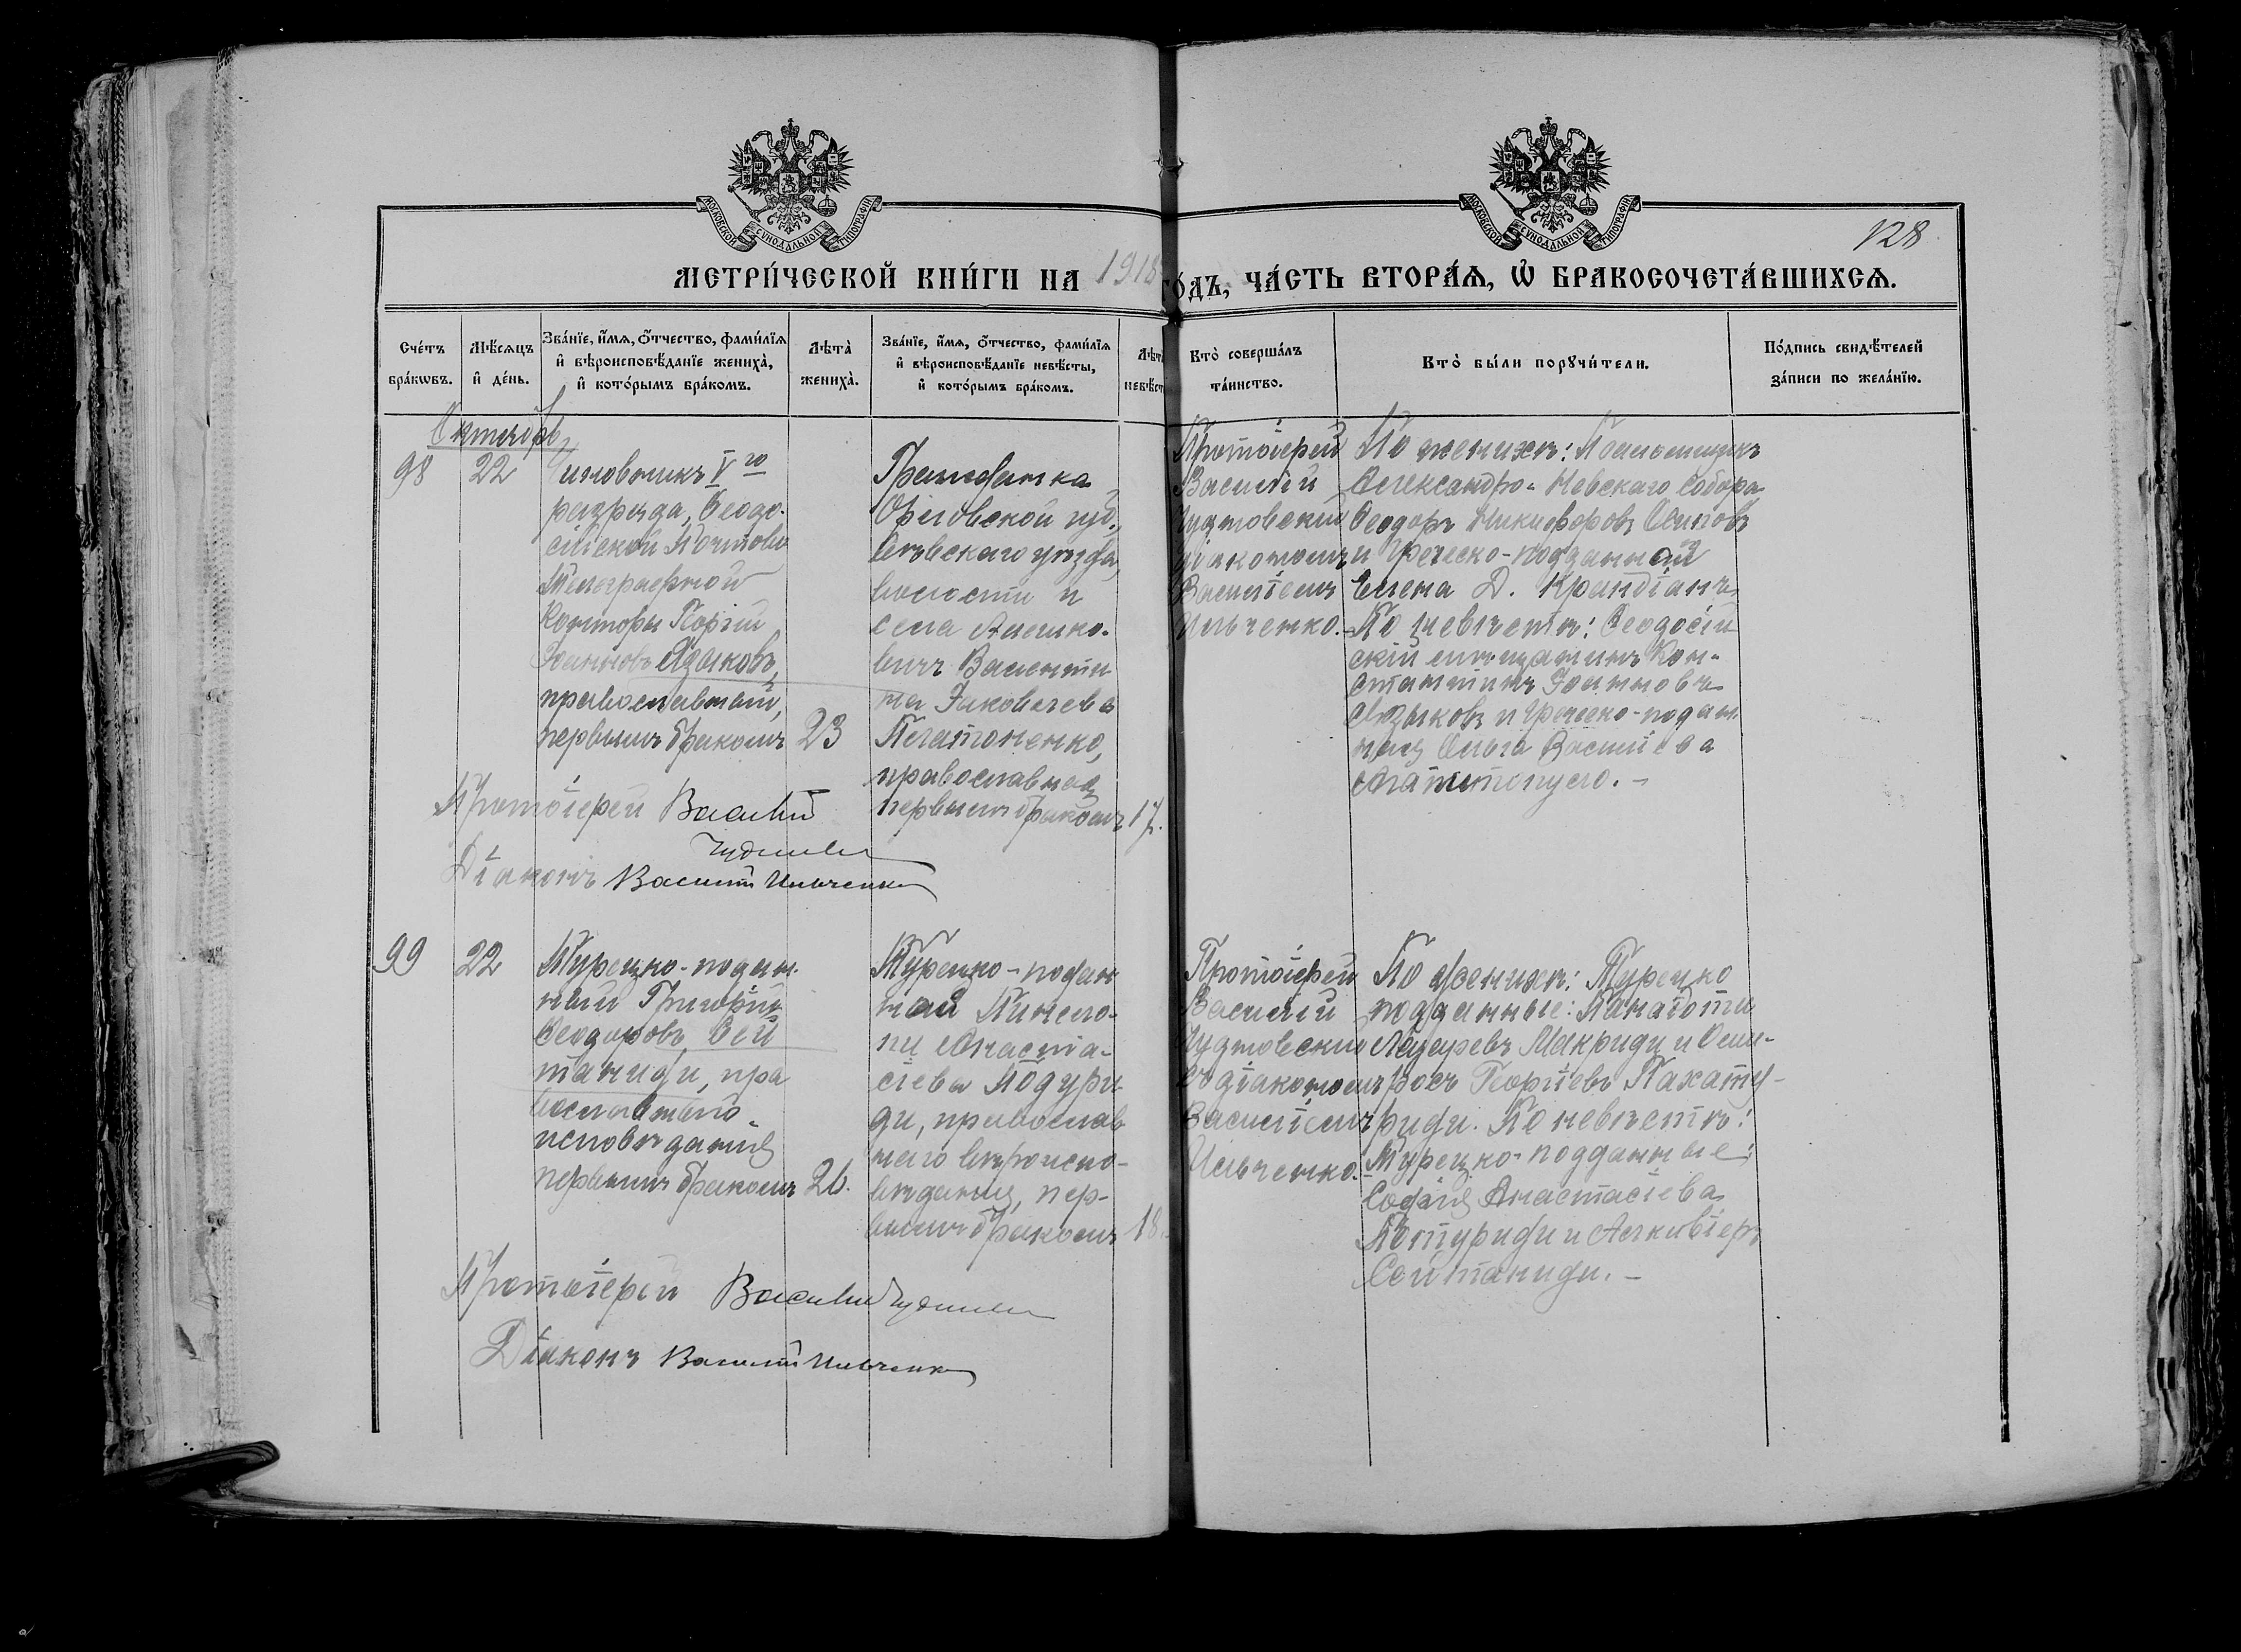 МОСКОВСКОЙ СѴНОДАЛЬНОЙ ТИПОГРАФІИ
МОСКОВСКОЙ СѴНОДАЛЬНОЙ ТИПОГРАФІИ
128
МЕТРИ́ЧЕСКОЙ КНИ́ГИ НА 1918 ГО́ДЪ, ЧА́СТЬ ВТОРА́Ѧ, Ѡ҆ БРАКОСОЧЕТА́ВШИХСѦ.
Сче́тъ бра́кѡвъ.
Мѣ́сѧцъ и҆ де́нь.
Зва́нїе, и҆́мѧ, ѻ҆́тчество, фами́лїѧ и҆ вѣроисповѣ́данїе жениха̀, и҆ кото́рымъ бра́комъ.
Лѣта̀ жениха̀.
Зва́нїе, и҆́мѧ, ѻ҆́тчество, фами́лїѧ и҆ вѣроисповѣ́данїе невѣ́сты, и҆ кото́рымъ бра́комъ.
Лѣта невѣст
Кто̀ соверша́лъ та́инство.
Кто̀ бы́ли порꙋчи́тели.
По́дпись свидѣ́телей за́писи по жела́нїю.
Октябрь
98
22
Чиновникъ V го
разряда, Ѳеодо-
сійской Почтово
Телеграфной
Конторы Георгій
Іоанновъ Язиковъ,
православный,
первымъ бракомъ
23
Гражданка
Орловской губ.,
Сѣвскаго уѣзда,
волости и
села Алешко-
вичъ Валенти
на Іаковлева
Пелатоненко,
православная
первымъ бракомъ
17.
Протоіерей
Василій
Чудновскій
діакономъ
Василіемъ
Ильченко.
По женихѣ:
Александро-Невскаго Собора
Ѳеодоръ Никифоровъ Осиповъ
и Греческо-подданная
Елена Д. Крандіанъ
По невѣстѣ: Ѳеодосій
скій мѣщанинъ Кон-
стантинъ Іоанновъ
Язиковъ и Греческо-поддан
ная Ольга Васильева
Протоіерей Василій
Чудновскій
Діаконъ Василій Ильченко
99
22
Турецко-поддан-
ный Григорій
Ѳеодоровъ Сей
таниди, пра
вославнаго
исповѣданія
первымъ бракомъ
26.
Турецко-поддан
ная Пинело-
пи Анаста-
сіева Подури
ди, православ
наго вѣроиспо-
вѣданія, пер-
вымъ бракомъ
18.
Протоіерей
Василій
Чудновскій
съ діакономъ
Василіемъ
Ильченко.
По женихѣ: Турецко
подданные: Панаіоти
Лазаревъ Макриди и Оми-
росъ Георгіевъ Пахату-
риди. По невѣстѣ:
Турецко-подданные:
Софія Анастасіева
Потуриди и Алкивіеръ
Сейтаниди.
Протоіерей Василій Чудновскій
Діаконъ Василій Ильченко